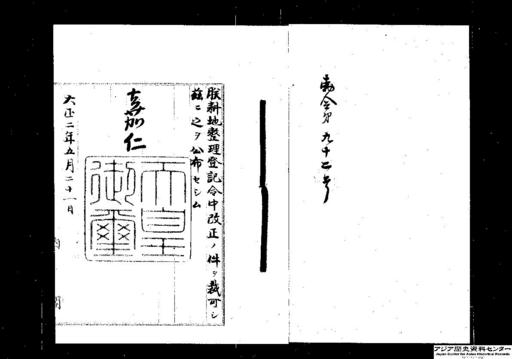 勅令第九十二号
朕耕地整理登記令中改正ノ件ヲ裁可シ
茲ニ之ヲ公布セシム
嘉仁
天皇
御璽
大正二年五月二十一日
アジア歴史資料センター
Japan Center for Asian Historical Records